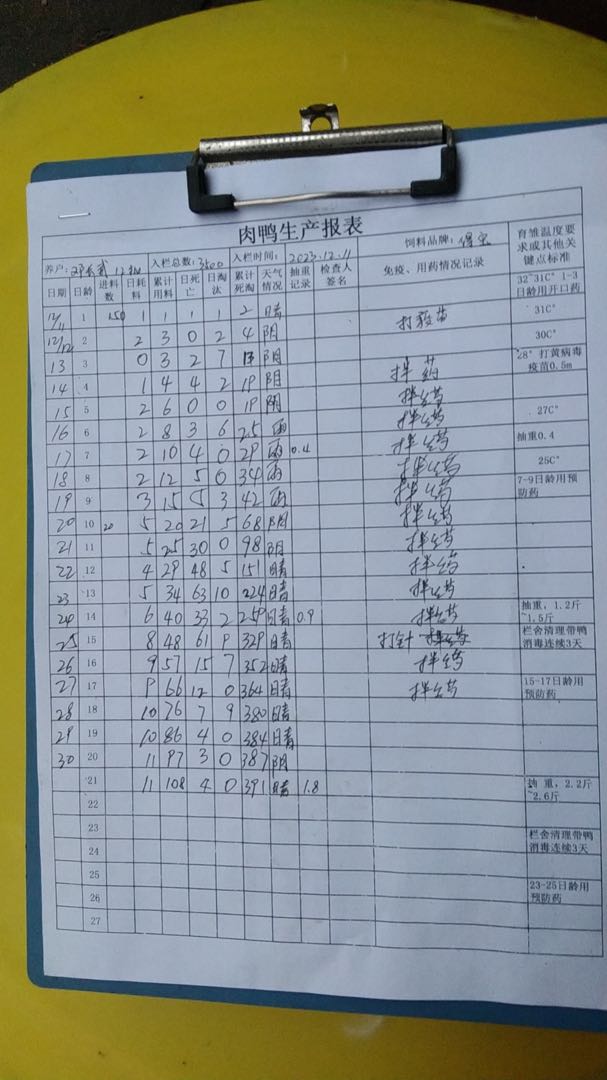 肉鸭生产报表
养户: 邓长武 12 入栏总数: 3500 入栏时间: 2023.12.11 饲料品牌: 育雏温度要求或其他关键点标准
日期 日龄 进料数 日耗料 累计用料 日死亡 日淘汰 累计死淘 天气情况 抽重记录 检查人签名 免疫、用药情况记录
12/11 1 150 1 1 1 1 2 晴 32~31C° 1-3日龄用开口药
12/12 2 2 3 0 2 4 阴 打疫苗 31C°
13 3 0 3 2 7 13 阴 30C°
14 4 1 4 4 2 19 阴 拌药 28° 打黄病毒疫苗0.5m
15 5 2 6 0 0 19 阴 拌药
16 6 2 8 3 6 25 雨 拌药 27C°
17 7 2 10 4 0 29 雨 0.4 拌药 抽重0.4
18 8 2 12 5 0 34 雨 拌药 25C°
19 9 3 15 5 3 42 雨 拌药 7-9日龄用预防药
20 10 20 5 20 21 5 68 阴 拌药
21 11 5 25 30 0 98 阴 拌药
22 12 4 29 48 5 151 晴 拌药
23 13 5 34 63 10 224 晴 拌药
24 14 6 40 33 2 259 晴 0.9 拌药 抽重, 1.2斤~1.5斤
25 15 8 48 61 9 329 晴 打针 栏舍清理带鸭消毒连续3天
26 16 9 57 15 7 352 晴 拌药
27 17 9 66 12 0 364 晴 拌药 15-17日龄用预防药
28 18 10 76 7 9 380 晴
29 19 10 86 4 0 384 晴
30 20 11 97 3 0 387 阴
21 11 108 4 0 391 晴 1.8 抽 重, 2.2斤~2.6斤
22
23 栏舍清理带鸭消毒连续3天
24
25 23-25日龄用预防药
26
27